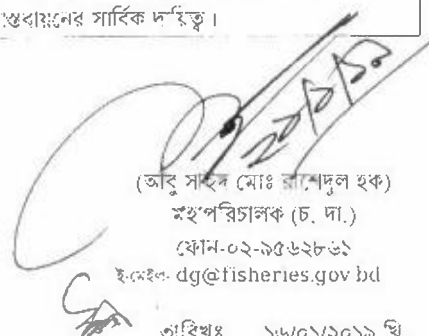 স্তবায়নের সার্বিক দায়িত্ব।
(আবু সাইদ মোঃ রাশেদুল হক)
মহাপরিচালক (চ. দা.)
ফোন-০২-৯৫৬২৮৬১
ই-মেইল- dg@fisheries.gov.bd
তারিখঃ ১৬/০১/২০১৯ খ্রি